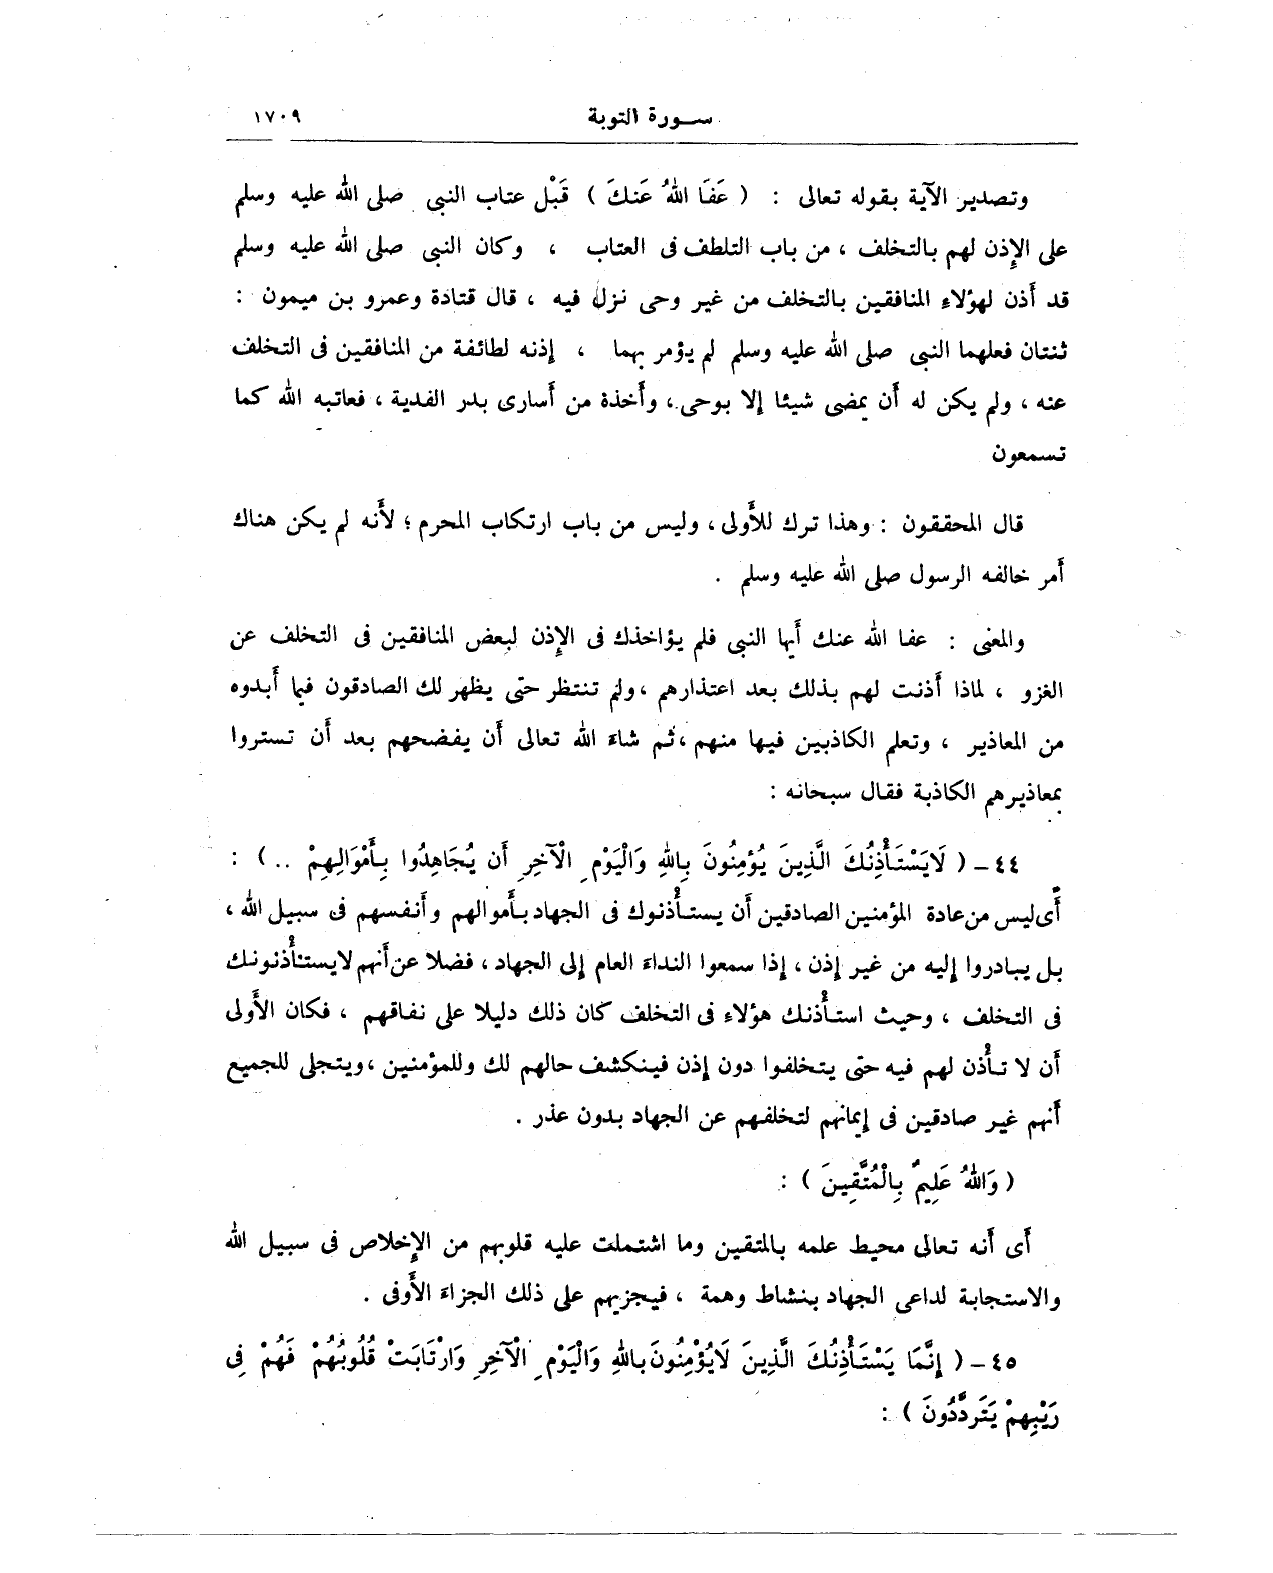 سورة التوبة ١٧٠٩
وتصدير الآية بقوله تعالى : ( عَفَا اللهُ عَنكَ ) قَبْل عتاب النبى صلى الله عليه وسلم
على الإِذن لهم بالتخلف ، من باب التلطف فى العتاب ، وكان النبى صلى الله عليه وسلم
قد أَذن لهؤلاء المنافقين بالتخلف من غير وحى نزل فيه ، قال قتادة وعمرو بن ميمون :
ثنتان فعلهما النبى صلى الله عليه وسلم لم يؤمر بهما ، إذنه لطائفة من المنافقين فى التخلف
عنه ، ولم يكن له أَن يمضى شيئا إلا بوحى ، وأَخذة من أَسارى بدر الفدية ، فعاتبه الله كما
تسمعون
قال المحققون : وهذا ترك للأَولى ، وليس من باب ارتكاب المحرم ؛ لأَنه لم يكن هناك
أَمر خالفه الرسول صلى الله عليه وسلم .
والمعنى : عفا الله عنك أَيها النبى فلم يؤاخذك فى الإِذن لبعض المنافقين فى التخلف عن
الغزو ، لماذا أَذنت لهم بذلك بعد اعتذارهم ، ولم تنتظر حتى يظهر لك الصادقون فيما أَبدوه
من المعاذير ، وتعلم الكاذبين فيها منهم ، ثم شاءَ الله تعالى أَن يفضحهم بعد أَن تستروا
بمعاذيرهم الكاذبة فقال سبحانه :
٤٤ – ( لَايَسْتَأْذِنُكَ الَّذِينَ يُؤمِنُونَ بِاللهِ وَالْيَوْمِ الْآخِرِ أَن يُجَاهِدُوا بِأَمْوَالِهِمْ .. ) :
أَى ليس من عادة المؤمنين الصادقين أَن يستأْذنوك فى الجهاد بأَموالهم وأَنفسهم فى سبيل الله ،
بل يبادروا إليه من غير إذن ، إذا سمعوا النداءَ العام إلى الجهاد ، فضلا عن أَنهم لايستأْذنونك
فى التخلف ، وحيث استأْذنك هؤلاء فى التخلف كان ذلك دليلا على نفاقهم ، فكان الأَولى
أَن لا تأْذن لهم فيه حتى يتخلفوا دون إذن فينكشف حالهم لك وللمؤمنين ، ويتجلى للجميع
أَنهم غير صادقين فى إيمانهم لتخلفهم عن الجهاد بدون عذر .
( وَاللهُ عَلِيمٌ بِالْمُتَّقِينَ ) :
أَى أَنه تعالى محيط علمه بالمتقين وما اشتملت عليه قلوبهم من الإِخلاص فى سبيل الله
والاستجابة لداعى الجهاد بنشاط وهمة ، فيجزيهم على ذلك الجزاءَ الأَوفى .
٤٥ – ( إِنَّمَا يَسْتَأْذِنُكَ الَّذِينَ لَايُؤْمِنُونَ بِاللهِ وَالْيَوْمِ الْآخِرِ وَارْتَابَتْ قُلُوبُهُمْ فَهُمْ فِى
رَيْبِهِمْ يَتَرَدَّدُونَ ) :